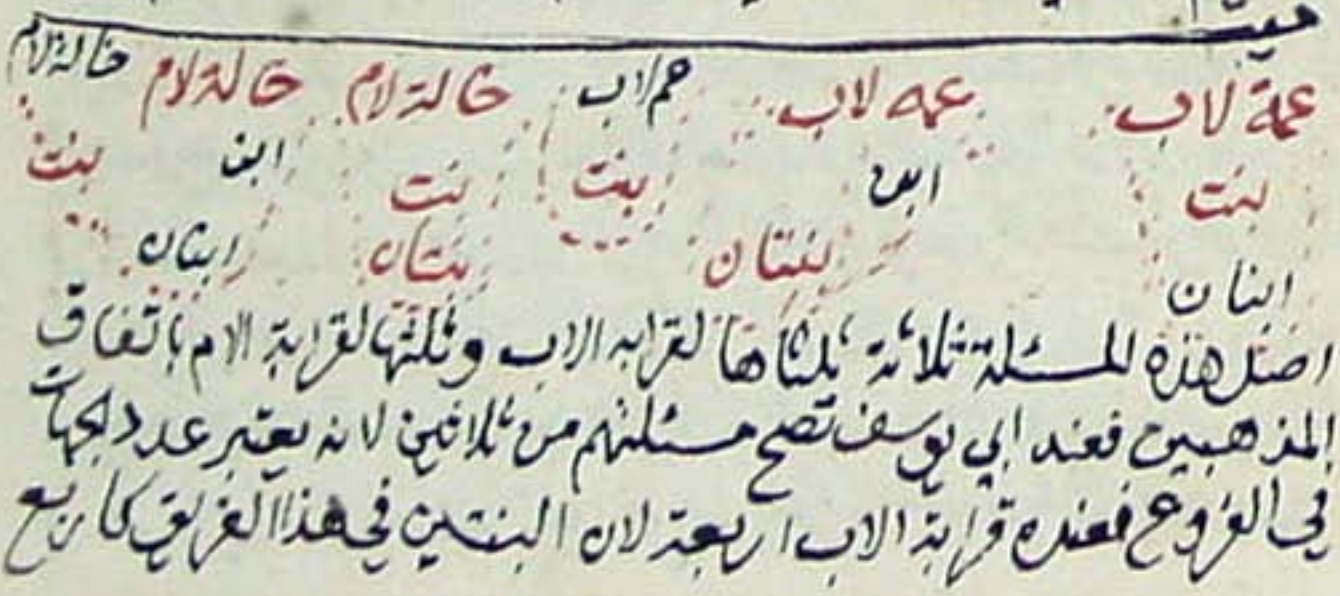 ميت
عمة لاب عمه لاب عم لاب خالة لام خالة لام خالة لام
بنت ابن بنت بنت ابن بنت
ابنان بنتان بنتان ابنان
اصل هذه المسئلة ثلاثة ثلثاها لقرابه الاب وثلثها لقرابة الام باتفاق
المذهبين فعند ابي يوسف تصح مسئلتهم من ثلاثين لانه يعتبر عدد الجهات
في الفروع فعنده قرابة الاب اربعة لان البنتين في هذا الفريق كاربع